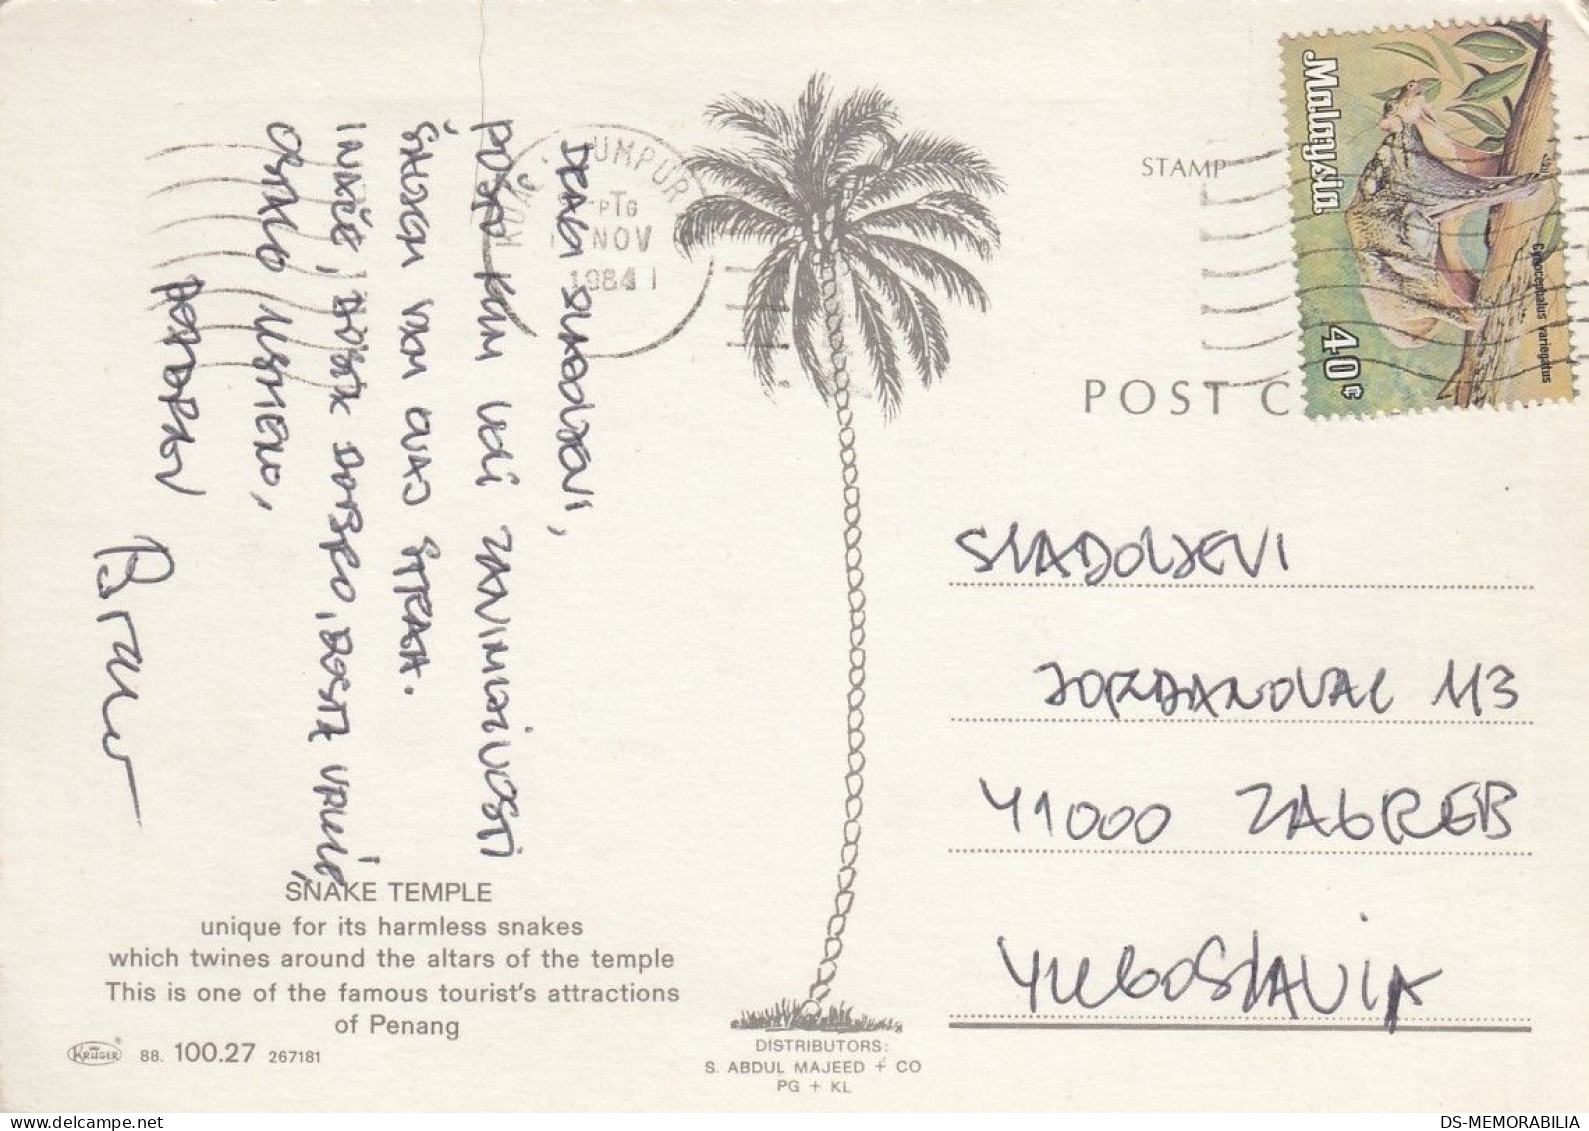 DRAGI SLADOLJEVI,
POŠTO VAM VOLI ZANIMLJIVOSTI
ŠALJEM VAM OVAJ ŠTRAH.
INAČE, DOBRO, DOSTA VRUĆE,
OSTALO USMENO,
POZDRAV
Brano
KUALA LUMPUR
PTG
NOV
1984
STAMP
Malaysia
40¢
Cynocephalus variegatus
POST C
SLADOLJEVI
JORDANOVAC 113
41000 ZAGREB
YUGOSLAVIA
SNAKE TEMPLE
unique for its harmless snakes
which twines around the altars of the temple
This is one of the famous tourist's attractions
of Penang
KRÜGER 88. 100.27 267181
DISTRIBUTORS:
S. ABDUL MAJEED + CO
PG + KL
DS-MEMORABILIA